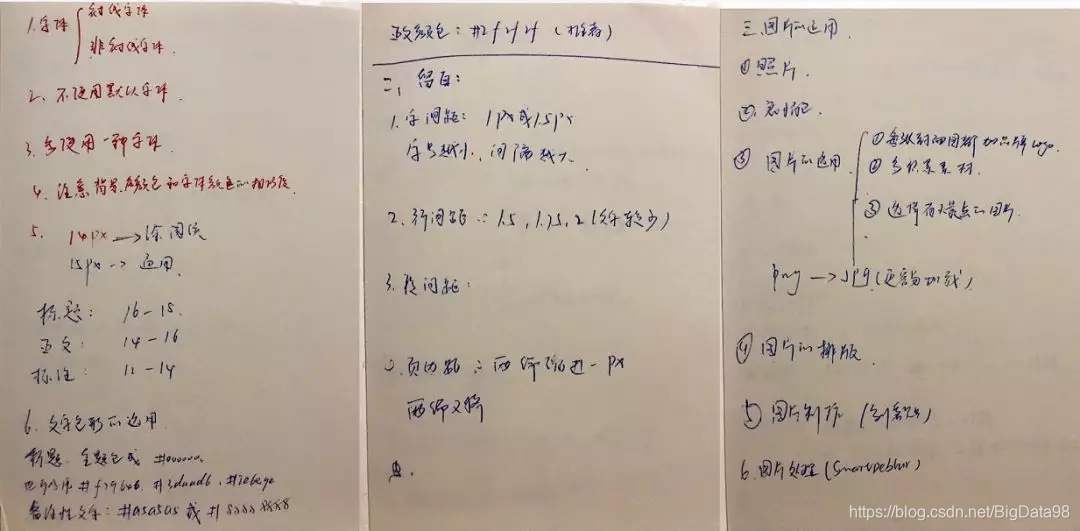 1.字体
衬线字体
非衬线字体.
2、不使用默认字体.
3.多使用一种字体
4.注意背景颜色和字体颜色的相似度
5.
14px → 
15px → 通用.
标题: 16-18.
正文: 14-16
标注: 12-14
6.文字色彩的运用
标题、主题色或 #000000.
#3daad6.
备注性文字: #a5a5a5 或 #
正文颜色: #3f3f3f (推荐)
二、留白:
1.字间距: 1px或1.5px
字号越小,间隔越大.
2.行间距: 1.5, 1.75, 2(文字较少)
3.段间距:
页边距: 两端缩进一px
两端对齐
三.图片的运用.
①照片.
②
③ 图片的运用
①
②多积累素材.
③选择有 的图片.
png → jpg(更容易加载)
④图片的排版.
5)图片制作 (创客贴)
6.图片处理(Smartdeblur)
https://blog.csdn.net/BigData98